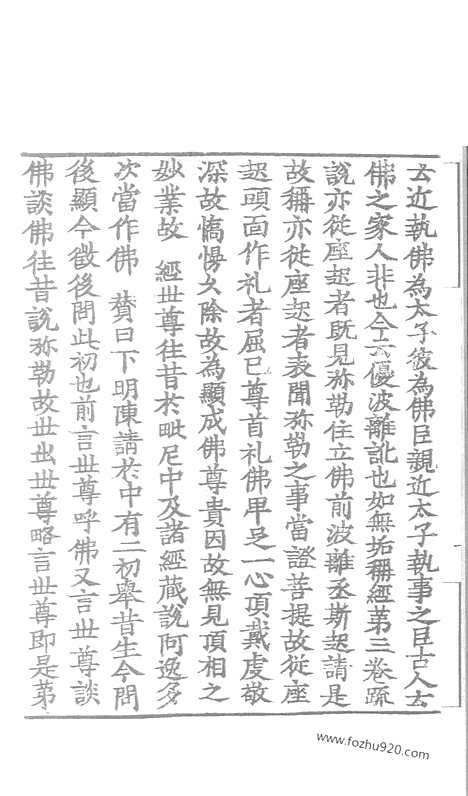 云近執佛為太子彼為佛臣親近太子執事之臣古人云
佛之家人非也今云優波離訛也如無垢稱經第三卷疏
說亦從座起者既見弥勒住立佛前波離丞斯起請是
故稱亦從座起者表聞弥勒之事當證菩提故從座
起頭面作礼者屈己尊首礼佛卑足一心頂戴虔敬
深故憍慢久除故為顯成佛尊貴因故無見頂相之
妙業故 經世尊往昔於毗尼中及諸經蔵說阿逸多
次當作佛 賛曰下明陳請於中有二初舉昔生今問
後顯今徵後問此初也前言世尊呼佛又言世尊談
佛談佛往昔說弥勒故世出世尊略言世尊即是第
www.fozhu920.com